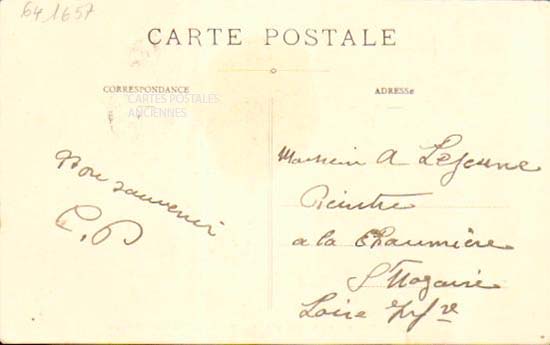 641657
CARTE POSTALE
CORRESPONDANCE
ADRESSE
CARTES POSTALES
ANCIENNES
Bon souvenir
C.P
Monsieur A Lejeune
Peintre
a la Chaumière
St Nazaire
Loire Infre